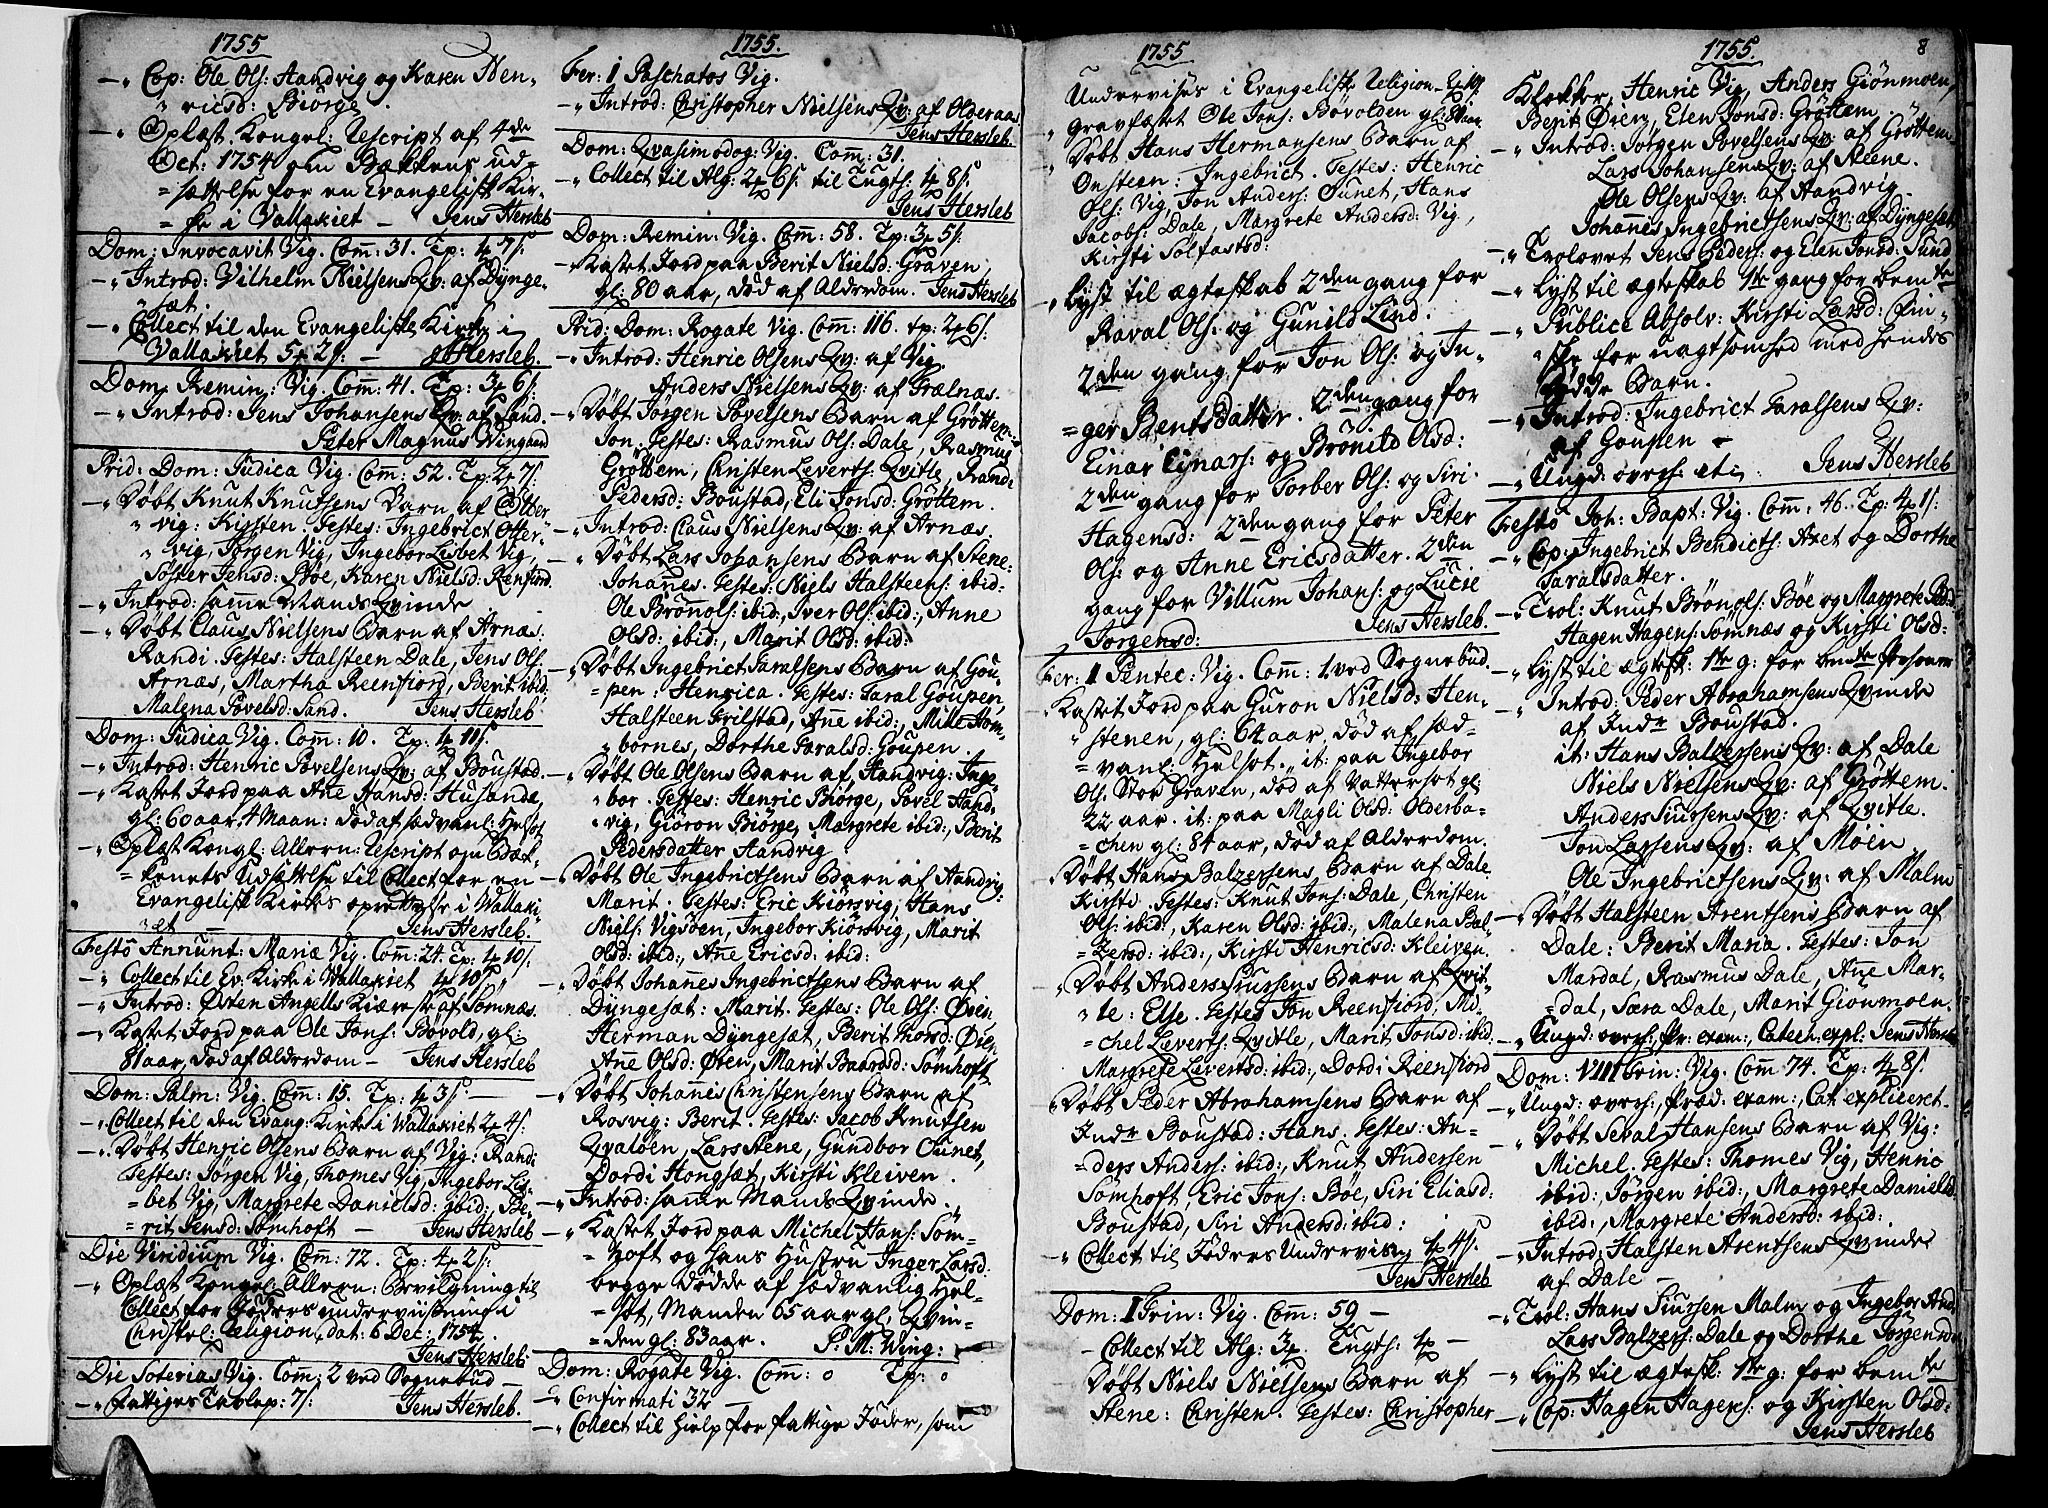 1755
-" Cop: Ole Ols: Aandvig og Karen Hen-
" ricsd: Biörge.
-" Oplæst Kongel: Rescript af 4de
Oct: 1754 om Bækkens ud-
= sættelse for en Evangelisk Kir-
= ke i Vallakiet - Jens Hersleb
Dom: Invocavit Vig. Com̄: 31. Tp: 1 7/:
-" Introd: Vilhelm Nielsens Qv: af Dÿnge-
" sæt.
-" Collect til den Evangeliske Kirke i
Vallakiet 5 2/: - J Hersleb.
Dom: Remin: Vig. Com̄: 41. Tp: 3 6/:
-" Introd: Jens Johansens Qv: af Sand.
Peter Magnus Wingaard
Prid: Dom: Judica Vig. Com: 52. Tp: 2 7/:
-" Döbt Knut Knutsens Barn af Otter
" vig: Kirsten. Testes: Ingebrict Otter-
" vig, Jörgen Vig, Ingebor Lisbet Vig,
Söster Jensd: Böe, Karen Nielsd: Rensiord.
-" Introd: sam̄e Mands Qvinde
-" Döbt Claus Nielsens Barn af Arnæs:
Randi. Testes: Halsteen Dale, Jens Ols:
Arnæs, Martha Reensiord, Berit ibid
Malena Povelsd: Sand. Jens Hersleb
Dom: Judica Vig. Com̄: 10. Tp: 1 11/:
-" Introd: Henric Povelsens Qv: af Boustad.
-" Kastet Jord paa An̄e Hansd: Husande,
gl: 60 aar, 4 Maan: död af sædvanl: Helsot
-" Oplæst Kongl: Allern: Rescript om Bæk-
= kenets Udsættelse til Collect for en
Evangelisk Kirkes oprettelse i Wallaki
" et Jens Hersleb.
Festo Annunt: Mariæ Vig. Com̄: 24. Tp: 1 10/:
-" Collect til Ev: Kirke i Wallakiet 1 10/:
-" Introd: Östen Angells Kiæreste af Sömnæs.
-" Kastet Jord paa Ole Jons: Bövold, gl:
81 aar, död af Alderdom - Jens Hersleb
Dom: Palm: Vig. Com̄: 15. Tp: 1 3/: -
-" Collect til den Evang: Kirke i Wallakiet 2 4/:
-" Döbt Henric Olsens Barn af Vig: Randi
Testes: Jörgen Vig, Thomes Vig, Ingebor Lis-
= bet Vig, Margrete Danielsd: ibid:, Be-
= rit Jensd: Sömhoft - Jens Hersleb
Die Viridium Vig. Com̄: 72. Tp: 4 2/:
-" Oplæst Kongel: Allern: Bevilgning til
Collect for Jöders underviisning i
Christel: Religion, dat: 6 Dec: 1754.
Jens Hersleb
Die Soterias Vig. Com̄: 2 ved Sognebud -
-" Fattiges Tavlep: 7/: Jens Hersleb.
1755.
Fer: 1 Paschatos Vig.
-" Introd: Christopher Nielsens Qv: af Olderaas
Jens Hersleb.
Dom: Qvasimodog: Vig. Com̄: 31.
-" Collect til Alg: 2 6/: til Tugts: 1 8/:
Jens Hersleb
Dom: Remin: Vig. Com̄: 58. Tp: 3 5/:
-" Kastet Jord paa Berit Nielsd: Graven
gl: 80 aar, död af Alderdom. Jens Hersleb
Prid: Dom: Rogate Vig. Com̄: 116. tp: 2 6/:
-" Introd: Henric Olsens Qv: af Vig
Anders Nielsens Qv: af Frælnæs.
-" Döbt Jörgen Povelsens Barn af Gröttem:
Jon. Testes: Rasmus Ols: Dale, Rasmus
Gröttem, Christen Leverts: Qvitle, Randi
Pedersd: Boustad, Eli Jonsd: Gröttem.
-" Introd: Claus Nielsens Qv: af Arnæs.
-" Döbt Lars Johansens Barn af Stene:
Johan̄es. Testes: Niels Halsteens: ibid:
Ole Brönols: ibid:, Iver Ols: ibid:, Anne
Olsd: ibid:, Marit Olsd: ibid:
-" Döbt Ingebrict Taralsens Barn af Gou-
= pen: Henrica. Testes: Taral Goupen,
Halsteen Frilstad, An̄e ibid:, Mille Tom-
" bornes, Dorthe Taralsd: Goupen.
-" Döbt Ole Olsens Barn af Aandvig: Inge
" bor. Testes: Henric Biörge, Povel Aand-
" vig, Giöron Biörge, Margrete ibid:, Berit
Pedersdatter Aandvig
-" Döbt Ole Ingebrictsens Barn af Aandvig:
Marit. Testes: Eric Kiörsvig, Hans
Niels: Vigsöen, Ingebor Kiörsvig, Marit
Olsd: ibid:, An̄e Ericsd: ibid:
-" Döbt Johan̄es Ingebrictsens Barn af
Dÿngesæt: Marit. Testes: Ole Ols: Ören
Herman Dÿngesæt, Berit Thorsd: Ören
An̄e Olsd: Ören, Marit Baarsd: Sömhoft
-" Döbt Johan̄is Christensens Barn af
Rosvig: Berit. Testes: Jacob Knutsen
Qvalöen, Lars Stene, Gundbor Ounet,
Dordi Hongsæt, Kirsti Kleiven.
-" Introd: sam̄e Mands Qvinde.
-" Kastet Jord paa Michel Hans: Söm-
= hoft og hans Hustru Inger Larsd:
begge dödde af sædvanlig Hel-
= sot, Manden 65 aar gl; Qvin-
= den gl: 83 aar. P: M: Wing:
Dom: Rogate Vig. Com̄: 0 Tp: 0
-" Confirmati 32 -
-" Collect til Hielp for fattige Jöder, som
1755
Undervises i Evangelisk Religion
" Gravfæstet Ole Jons: Bövolden gl: 81 aar
" Döbt Hans Hermansens Barn af
Onsteen: Ingebrict. Testes: Henric
Ols: Vig, Jon Anders: Ounet, Hans
Jacobs: Dale, Margrete Andersd: Vig,
Kirsti Solfastsd:
-" Lyst til ægteskab 2den gang for
Raval Ols: og Gunild Lind.
2den gang for Jon Ols: og In-
= ger Bentsdatter. 2den gang for
Einar Einars: og Brönild Olsd:
2den gang for Torber Ols: og Siri
Hagensd: 2den gang for Peter
Ols: og Anne Ericsdatter. 2den
gang for Villum Johans: og Lucie
Jörgensd: Jens Hersleb.
Fer: 1 Pentec: Vig. Com̄: 1 ved Sognebud.
" Kastet Jord paa Guron Nielsd: Hen-
" stenen, gl: 64 aar, död af sæd-
= vanl: Helsot. " it: paa Ingebor
Ols: Stor Graven, död af Vattersot gl:
22 aar. it: paa Magli Olsd: Olderba-
= chen gl: 84 aar, död af Alderdom.
" Döbt Hans Balzersens Barn af Dale,
Kirsti. Testes: Knut Jons: Dale, Christen
Ols: ibid, Karen Olsd: ibid:, Malena Bal-
= zersd: ibid:, Kirsti Henricsd: Kleiven.
" Döbt Anders Siursens Barn af Qvit-
" le: Else. Testes Jon Reensiord, Mi-
= chel Leverts: Qvitle, Marit Jonsd: ibid.
Margrete Levertsd: ibid:, Dordi Reensiord
" Döbt Peder Abrahamsens Barn af
Indr Boustad: Hans. Testes: An-
= ders Anders: ibid:, Knut Andersen
Sömhoft, Eric Jons: Böe, Siri Eliasd:
Boustad, Siri Andersd: ibid:
" Collect til Jöders Undervisn 1 4/:
Jens Hersleb
Dom: I Trin: Vig. Com̄: 59 -
- Collect til Alg: 3. Tugts: 1 -
Döbt Niels Nielsens Barn af
Stene: Christen. Testes: Christopher
1755. 8
Klokker, Henric Vig, Anders Giönmoen,
Berit Ören, Elen Jonsd: Gröttem
-" Introd: Jörgen Povelsens Qv: af Gröttem
Lars Johansens Qv: af Steene.
Ole Olsens Qv: af Aandvig.
Johan̄is Ingebrictsens Qv: af Dÿngeset
-" Trolovet Jens Peders: og Elen Jonsd: Sand
-" Lyst til ægteskab 1te gang for bemte
-" Publice Absolv: Kirsti Larsd: Oin-
" for uagtsomhed med hendes
födde Barn.
-" Introd: Ingebrict Taralsens Qv:
af Goupen -
-" Ungd: overh: etc. Jens Hersleb
Festo Joh: Bapt: Vig. Com̄: 46. Tp: 4 1/:
-" Cop: Ingebrict Bendicts: Axet og Dorthe
Taralsdatter.
-" Trol: Knut Brönols: Böe og Margrete Ped:
Hagen Hagens: Sömnæs og Kirsti Olsd:
-" Lyst til ægtesk: 1te g: for bemte Personer
-" Introd: Peder Abrahamsens Qvinde
af Indr Boustad.
it: Hans Balzersens Qv: af Dale
Niels Nielsens Qv: af Gröttem.
Anders Siursens Qv: af Qvitle.
Jon Larsens Qv: af Möin.
Ole Ingebrictsens Qv: af Malm
-" Döbt Halsteen Arentsens Barn af
Dale: Berit Maria. Testes: Jon
Mardal, Rasmus Dale, An̄e Mar-
= dal, Sara Dale, Marit Gionmoen.
-" Ungd: overh:, pr: exam:, Catech: expl: Jens Hersleb
Dom: VIII Trin: Vig. Com̄: 74. Tp: 4 8/:
-" Ungd: overh:, præd: exam:, Cat: expliceret.
-" Döbt Seval Hansens Barn af Vig:
Michel. Testes: Thomes Vig, Henric
ibid:, Jörgen ibid:, Margrete Danielsd
ibid:, Margrete Andersd: ibid:
-" Introd: Halsten Arentsens Qvinde
af Dale -
-" Trol: Hans Siursen Malm og Ingebor And
Lars Balzers: Dale og Dorthe Jörgensd
-" Lyst til ægtesk: 1te g: for bemte
-" Cop: Hagen Hagens: og Kirsten Olsd:
Jens Hersleb